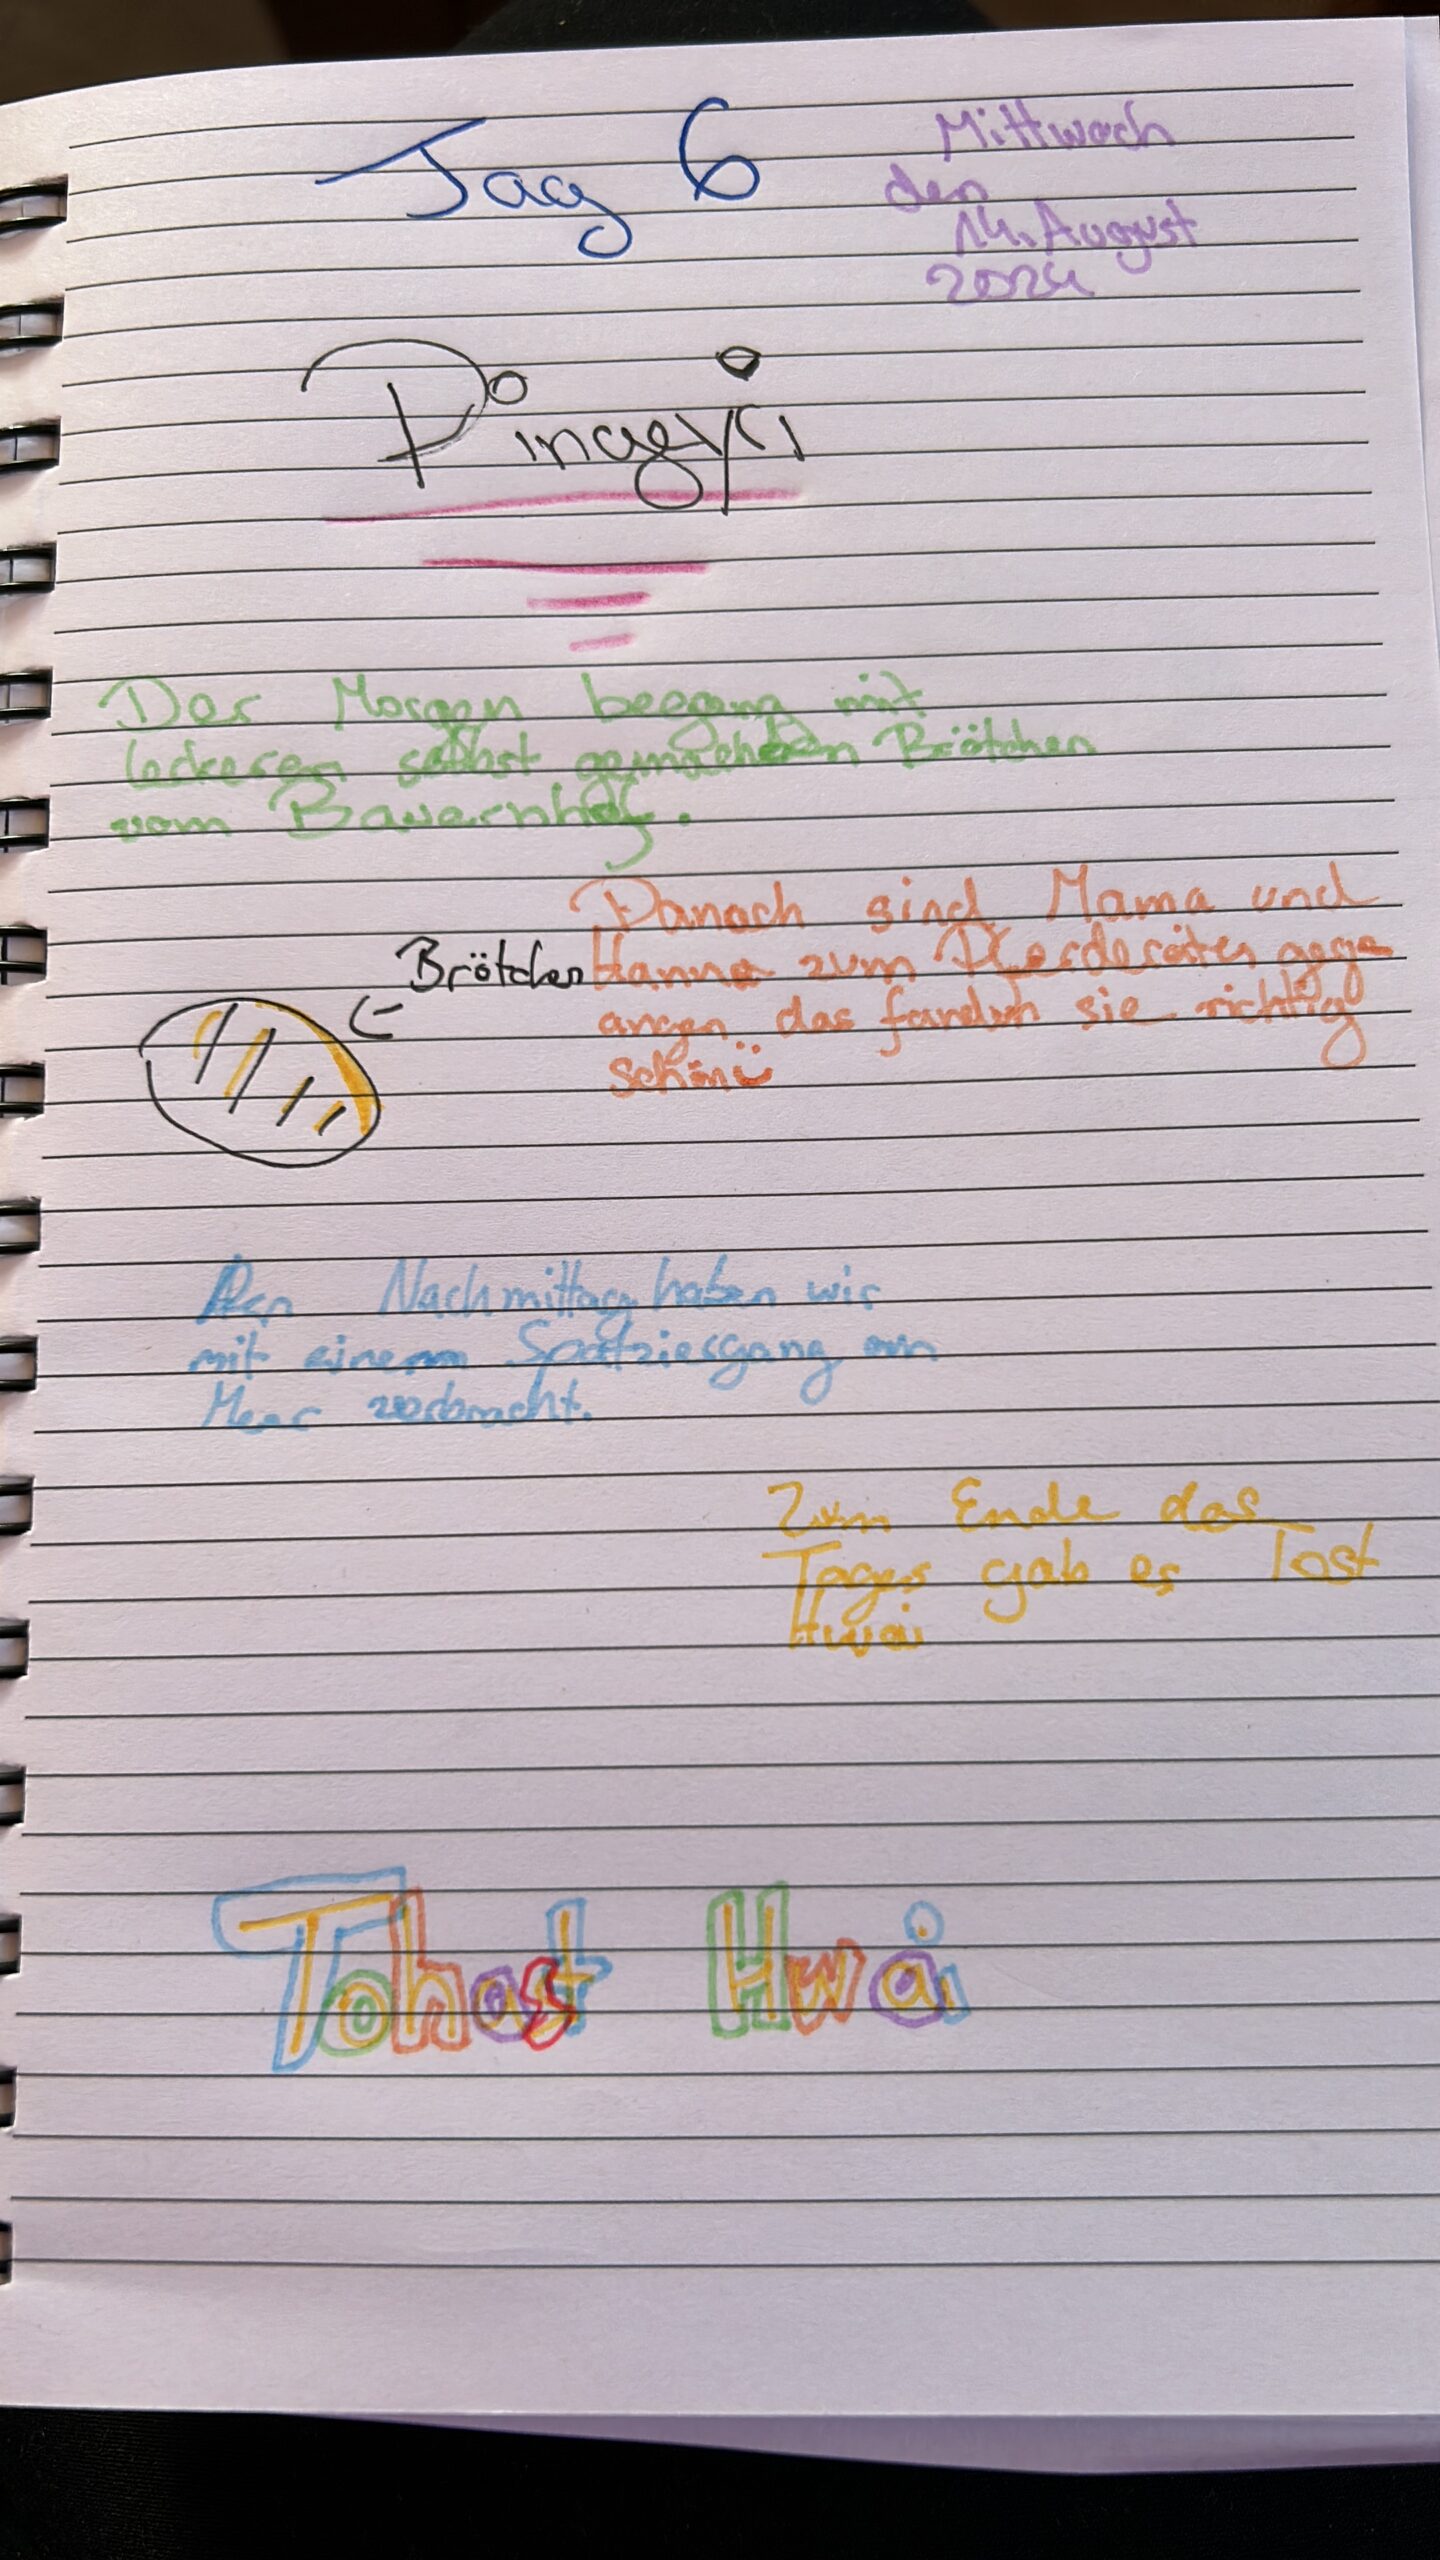 Tag 6
Mittwoch
den
14. August
2024
Der Morgen begang mit
leckeren selbst gemachten Brötchen
vom Bauernhof.
Brötchen
Danach sind Mama und
Hanna zum Pferdereiten gega
angen das fanden sie richtig
schön
Den Nachmittag haben wir
mit einem Spatziergang am
Meer verbracht.
Zum Ende des
Tages gab es Tost
Hwai
Tohast Hwai